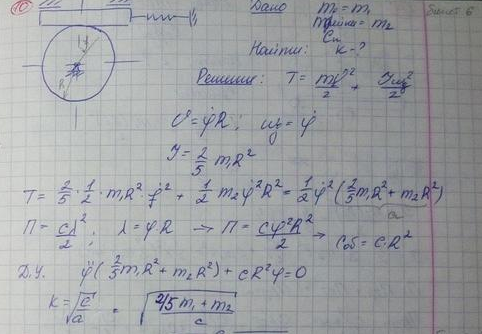 10
Дано m₀ = m₁
m = m₂
Найти: k - ?
Решение: T = mV²/2 + Jω²/2
R
V = φ̇R; ω = φ̇
J = 2/5 m₁R²
T = 2/5 · 1/2 · m₁R² φ̇² + 1/2 m₂φ̇²R² = 1/2 φ̇² (2/5 m₁R² + m₂R²)
a
П = cλ²/2; λ = φ·R → П = cφ²R²/2 → Cоб = cR²
Д.У. φ̈(2/5 m₁R² + m₂R²) + cR²φ = 0
k = √(c/a) = √((2/5 m₁ + m₂)/c)